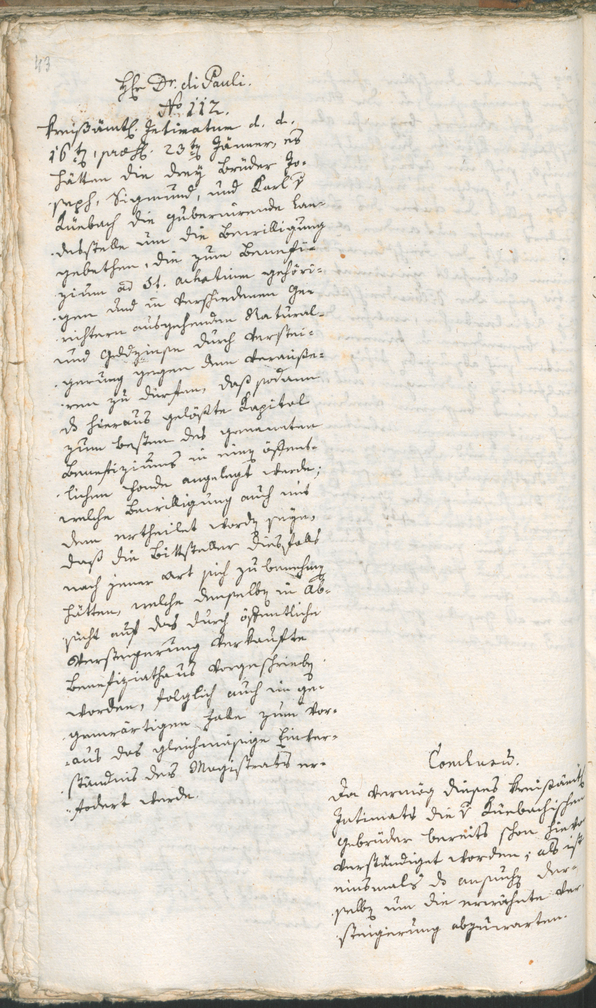 43
Hr Dr. di Pauli.
No 112.
Kreisämtl. Intimatum d. d.
16tn, praes. 23tn Jänner, es
hätten die drey Brüder Jo-
seph, Sigmund, und Karl v
Küebach die gubernirende Lan-
desstelle um die Bewilligung
gebethen, die zum Benefi-
zium ad St. Achatium gehöri-
gen und in verschiedenen Ge-
richtern ausgehenden Natural-
und Geldzinse durch Verstei-
gerung gegen dem veräuße-
ren zu dürfen, daß sodann
das hieraus gelößte Kapital
zum besten des genannten
Benefiziums in einen öffent-
lichen Fonde angelegt werde;
welche Bewilligung auch mit
dem ertheilet worden seye,
daß die Bittsteller diesfalls
nach jener Art sich zu benehmen
hätten, welche denselben in Ab-
sicht auf das durch öffentliche
Versteigerung verkaufte
Benefiziathaus vorgeschrieben
worden, folglich auch im ge-
genwärtigen Falle zum Vor-
aus das gleichmäsige Einver-
ständnis des Magistrats er-
fodert werde.
Conclusum.
Da vermög dieses kreisämtl
Intimats die v Küebachischen
Gebrüder bereits schon hievon
verständiget worden; als ist
einsmals das Ansuchen der-
selben um die erwähnte Ver-
steigerung abzuwarten.